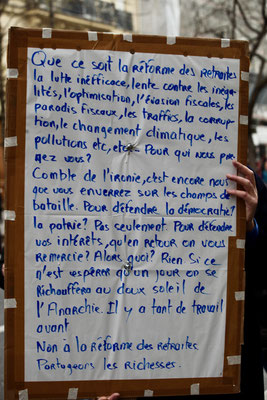 Que ce soit la réforme des retraites
la lutte inefficace, lente contre les inéga-
lités, l'optimisation, l'évasion fiscales, les
paradis fiscaux, les traffics, la corrup-
tion, le changement climatique, les
pollutions etc, etc. Pour qui nous pre-
nez vous?
Comble de l'ironie, c'est encore nous
que vous enverrez sur les champs de
bataille. Pour défendre la démocratie?
la patrie? Pas seulement. Pour défendre
vos intérêts, qu'en retour on vous
remercie? Alors quoi? Rien Si ce
n'est espérer qu'un jour on se
Rechauffera au doux soleil de
l'Anarchie. Il y a tant de travail
avant
Non à la réforme des retraites
Partageons les richesses.